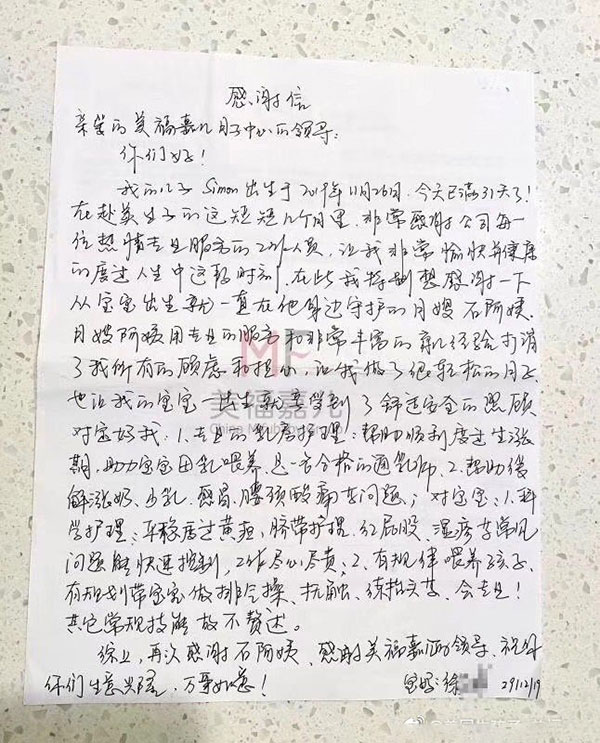 感谢信
亲爱的美福嘉儿月子中心的领导:
你们好!
我的儿子Simon出生于2019年11月26日,今天已满31天了!
在赴美生子的这短短几个月里,非常感谢公司每一
位热情专业服务的工作人员,让我非常愉快并健康
的度过人生中这段时刻,在此我特别想感谢一下
从宝宝出生就一直在他身边守护的月嫂石阿姨,
月嫂阿姨用专业的服务和非常丰富的育儿经验打消
了我所有的顾虑和担心,让我做了很轻松的月子,
也让我的宝宝一出生就享受到了舒适安全的照顾
对宝妈我:1.专业的乳房护理:帮助顺利度过生涨
期,助力宝宝母乳喂养,是一方合格的通乳师,2.帮助缓
解涨奶、少乳、感冒、腰颈酸痛等问题;对宝宝:1.科
学护理:平稳度过黄疸、脐带护理、红屁股、湿疹等常见
问题能快速控制,工作尽心尽责;2.有规律喂养孩子,
有规划带宝宝做排气操、抚触、练抬头等,会专业!
其它常规技能故不赘述。
综上,再次感谢石阿姨、感谢美福嘉儿的领导、祝
你们生意兴隆,万事如意!
宝妈:徐
29/12/19
MF
美福嘉儿